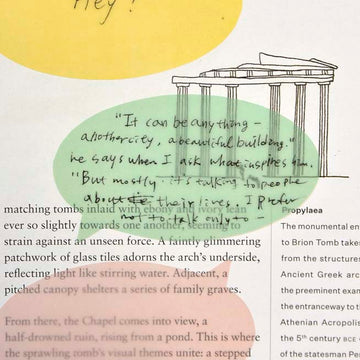 Hey?
"It can be anything –
another city, a beautiful building."
he says when I ask what inspires him.
"But mostly it's talking to people
about their lives. I prefer
not to talk only to –
matching tombs inlaid with ebony and ivory lean
ever so slightly towards one another, seeming to
strain against an unseen force. A faintly glimmering
patchwork of glass tiles adorns the arch's underside,
reflecting light like stirring water. Adjacent, a
pitched canopy shelters a series of family graves.
From there, the Chapel comes into view, a
half-drowned ruin, rising from a pond. This is where
the sprawling tomb's visual themes unite: a stepped
Propylaea
The monumental en
to Brion Tomb take
from the structure
Ancient Greek arc
the preeminent exan
the entranceway to t
Athenian Acropolis
the 5th century BCE
of the statesman Pe